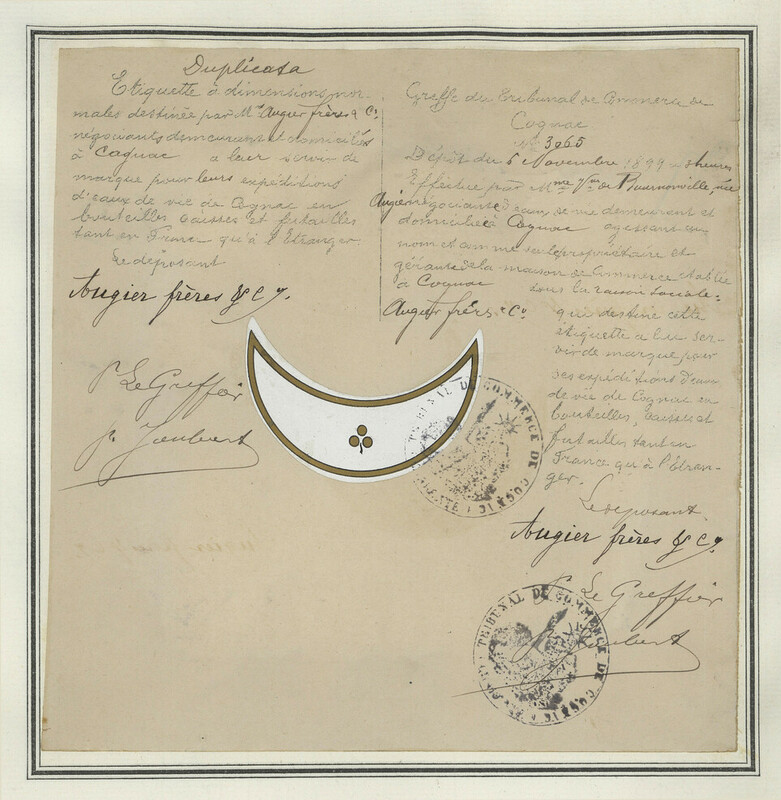 Duplicata
Etiquette à dimensions nor-
males destinée par M.rs Augier frères & Cº
négociants demeurant et domiciliés
à Cognac a leur servir de
marque pour leurs expéditions
d'eaux de vie de Cognac en
bouteilles caisses et futailles
tant en France qu'à l'Etranger
Le déposant
Augier frères & Cie.
P. Le Greffier
Greffe du Tribunal de Commerce de
Cognac
Nº 3065
Dépôt du 6 Novembre 1899 heures
Effectué par Mme Vve de Bournonville, née
Augier négociante d'eaux de vie demeurant et
domiciliée à Cognac agissant au
nom et comme seule propriétaire et
gérante de la maison de Commerce établie
à Cognac sous la raison sociale:
Augier frères & Cº
qui destine cette
étiquette a lui ser-
vir de marque pour
ses expéditions d'eaux
de vie de Cognac en
bouteilles, caisses et
futailles tant en
France qu'à l'Etran-
ger.
Le déposant
Augier frères & Cie.
P. Le Greffier
TRIBUNAL DE COMMERCE DE COGNAC
TRIBUNAL DE COMMERCE DE COGNAC